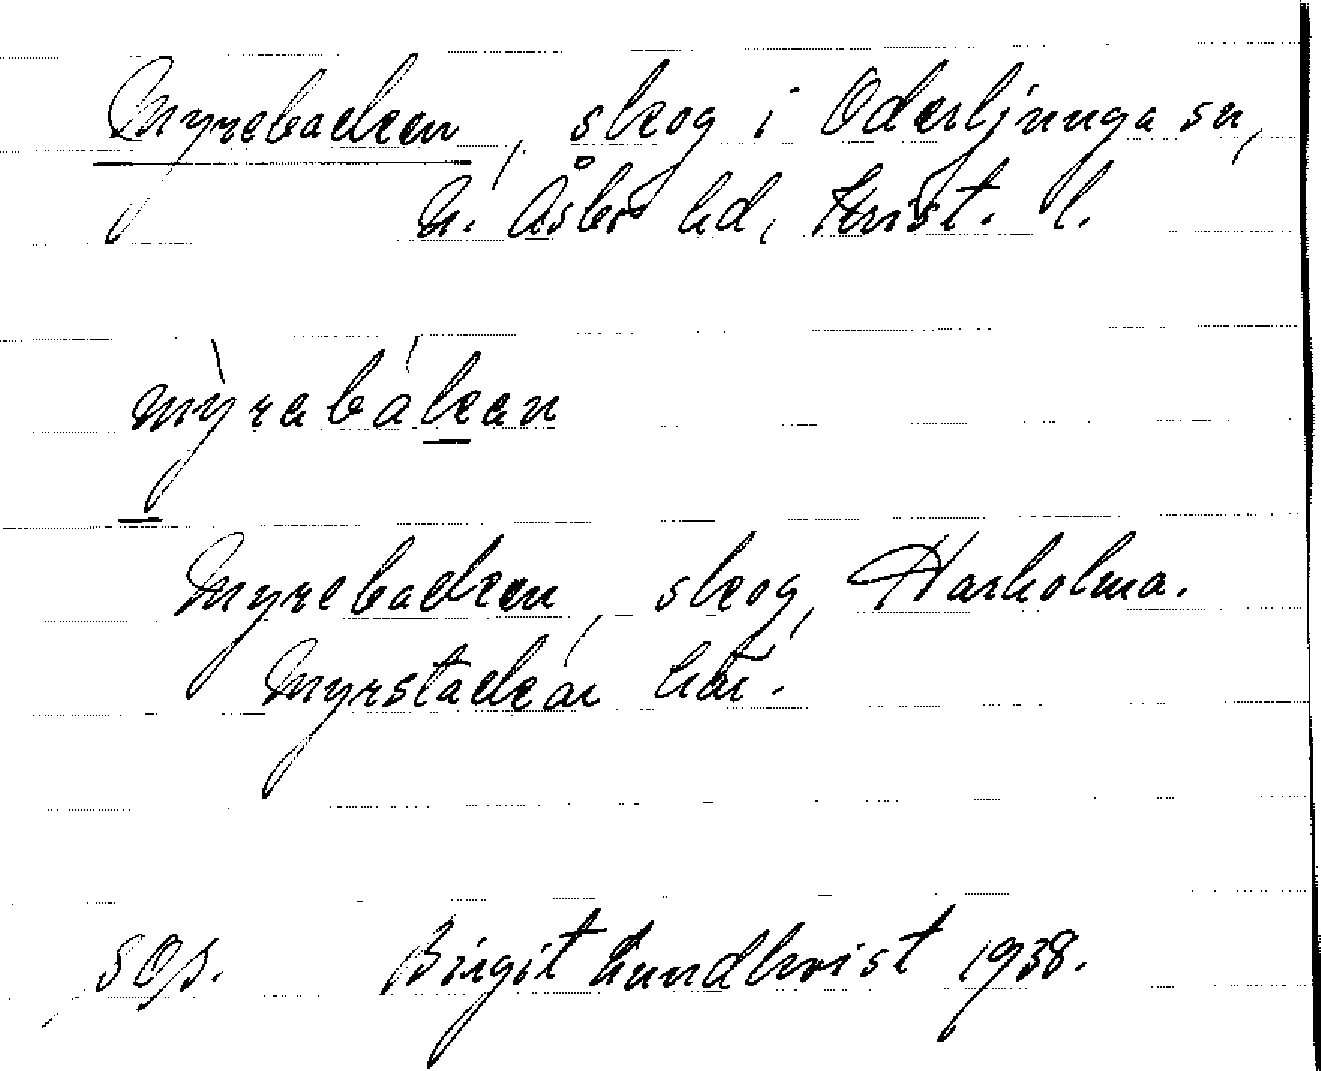 Myrebacken, skog i Oderljunga sn,
N. Åsbo hd, Krist. l.
mỳrabákan
Myrebacken, skog, Harholma.
Myrstackar här.
SOp. Birgit Lundkvist 1938.